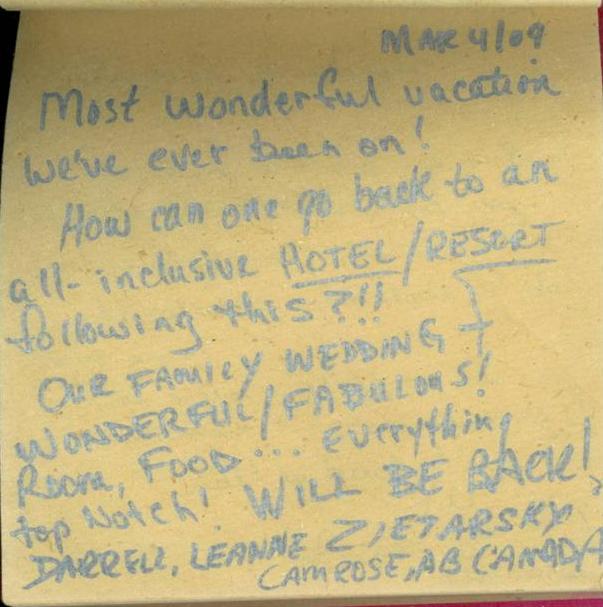 MAR 4/09
Most wonderful vacation
we've ever been on!
How can one go back to an
all-inclusive HOTEL/RESORT
following this?!!
OUR FAMILY WEDDING +
WONDERFUL/FABULOUS!
Room, FOOD... everything
top Notch! WILL BE BACK!
DARRELL, LEANNE ZIETARSKY
CAMROSE, AB CANADA